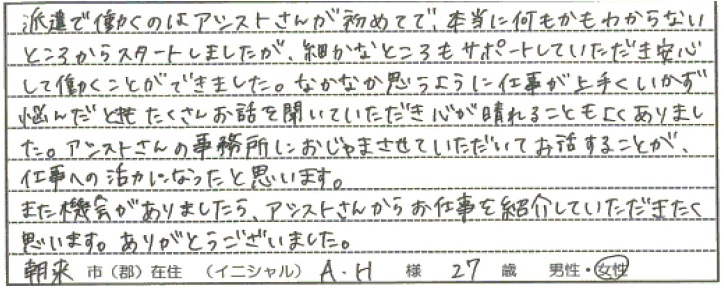 派遣で働くのはアシストさんが初めてで、本当に何もかもわからない
ところからスタートしましたが、細かなところもサポートしていただき安心
して働くことができました。なかなか思うように仕事が上手くいかず
悩んだ時もたくさんお話を聞いていただき心が晴れることもよくありまし
た。アシストさんの事務所におじゃまさせていただいてお話することが、
仕事への活力になったと思います。
また機会がありましたら、アシストさんからお仕事を紹介していただきたく
思います。ありがとうございました。
朝来 市（郡）在住 （イニシャル） A・H 様 27 歳 男性・女性